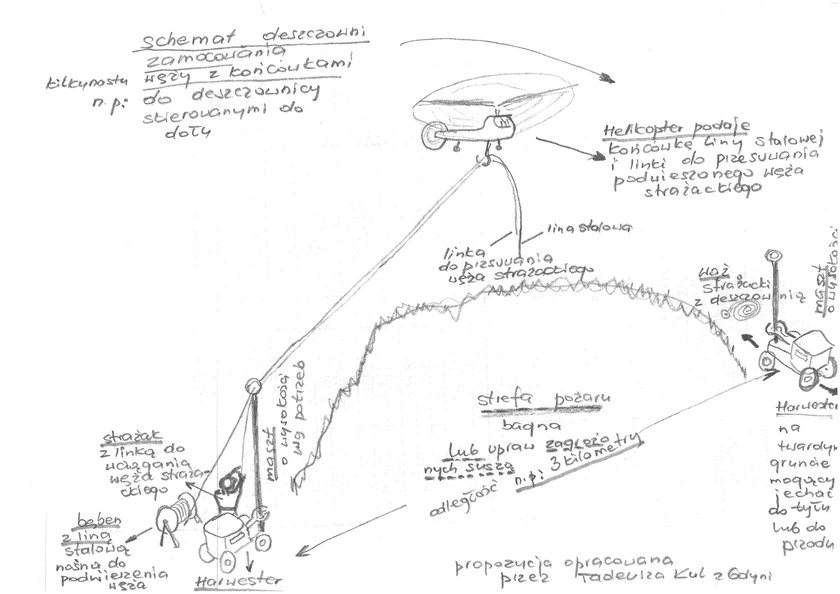 schemat deszczowni
zamocowania
kilkunastu węży z końcówkami
n.p: do deszczownicy
skierowanymi do
dołu
Helikopter podaje
końcówkę liny stalowej
i linki do przesuwania
podwieszonego węża
strażackiego
lina stalowa
linka
do przesuwania
węża strażackiego
wąż
strażacki
z deszczownią
maszt
o wysokości
Harwester
na
twardym
gruncie
mogący
jechać
do tyłu
lub do
przodu
strefa pożaru
bagna
lub upraw zagrożo
nych suszą
n.p: 3 kilometry
odległość
maszt
o wysokości
wg potrzeb
strażak
z linką do
wciągania
węża straża-
ckiego
bęben
z liną
stalową
nośną do
podwieszenia
węża
Harwester
propozycja opracowana
przez Tadeusza Kul z Gdyni